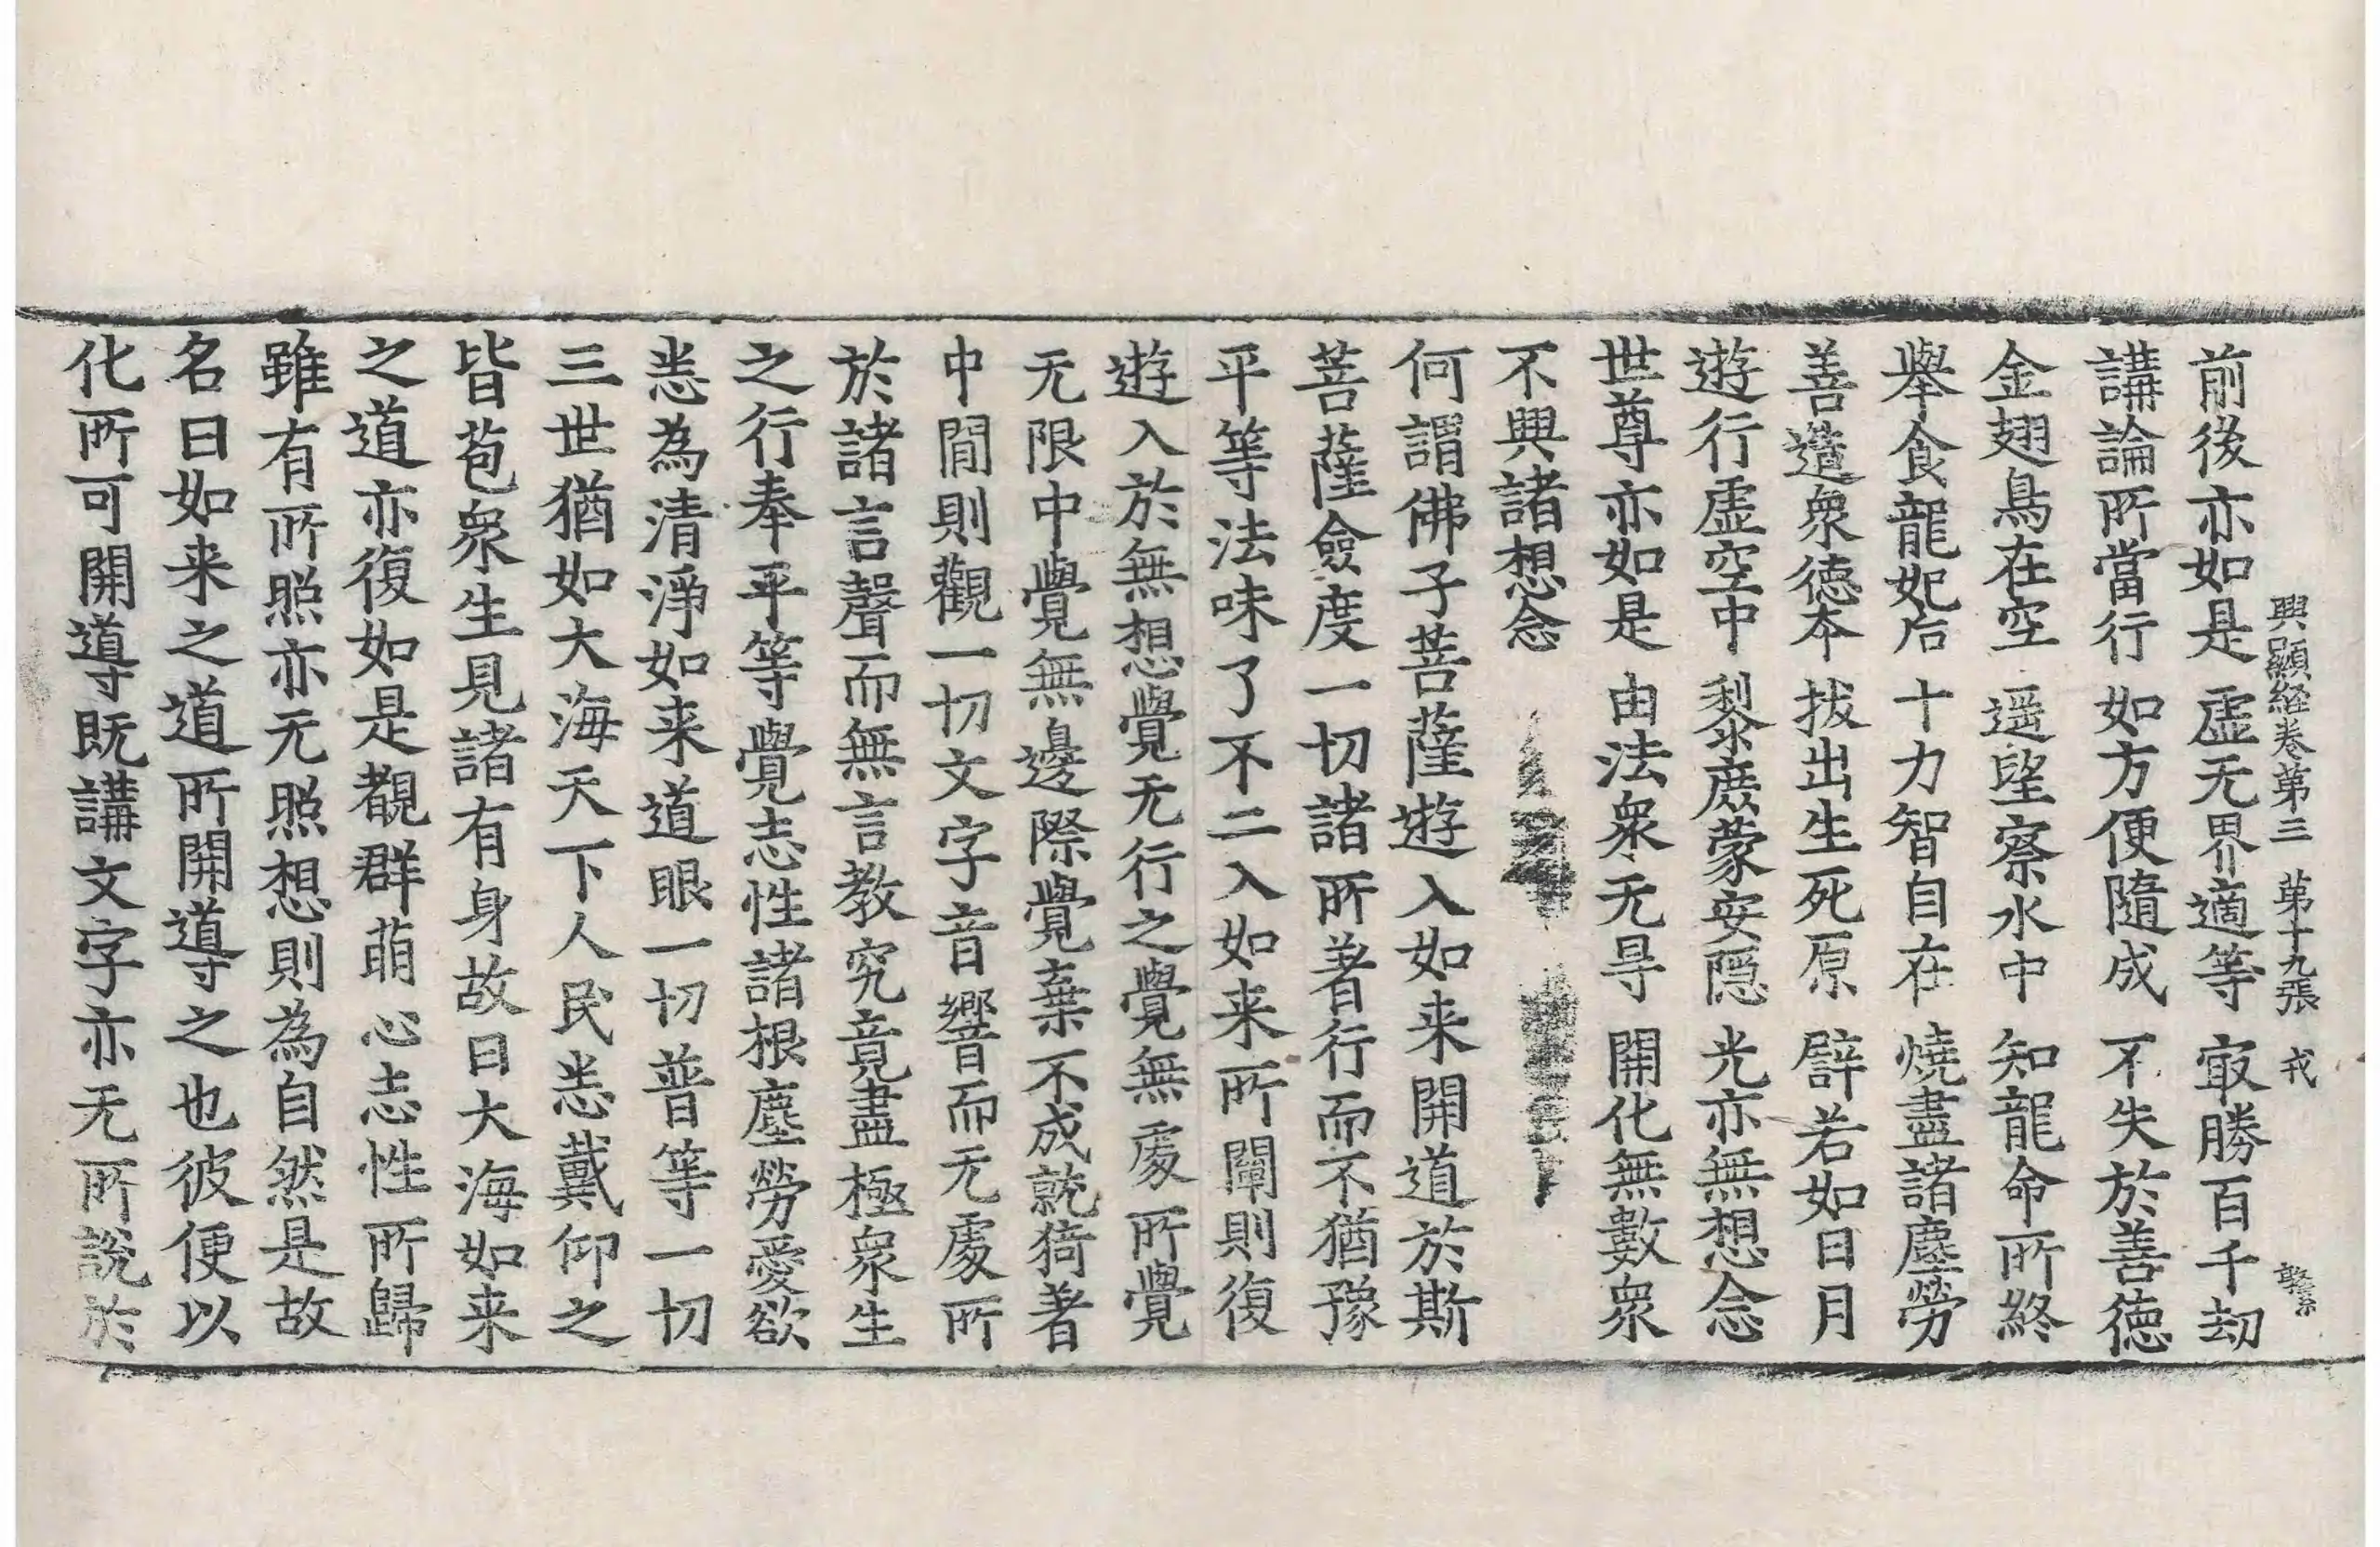 興顯経卷第三 第十九張 戎
前後亦如是 虛无界適等 㝡勝百千劫
講論所當行 如方便隨成 不失於善德
金翅鳥在空 遥望察水中 知龍命所終
舉食龍妃后 十力智自在 燒盡諸塵勞
善造衆德本 拔出生死原 譬若如日月
遊行虛空中 黎庶蒙安隱 光亦無想念
世尊亦如是 由法衆无㝵 開化無數衆
不興諸想念
何謂佛子菩薩遊入如来開道於斯
菩薩僉度一切諸所著行而不猶豫
平等法味了不二入如来所闡則復
遊入於無想覺无行之覺無處所覺
无限中覺無邊際覺棄不成就猗著
中閒則觀一切文字音響而无處所
於諸言聲而無言教究竟盡極衆生
之行奉平等覺志性諸根塵勞愛欲
悉為清淨如来道眼一切普等一切
三世猶如大海天下人民悉戴仰之
皆苞衆生見諸有身故曰大海如来
之道亦復如是覩群萌心志性所歸
雖有所照亦无照想則為自然是故
名曰如来之道所開導之也彼便以
化所可開導既講文字亦无所說於